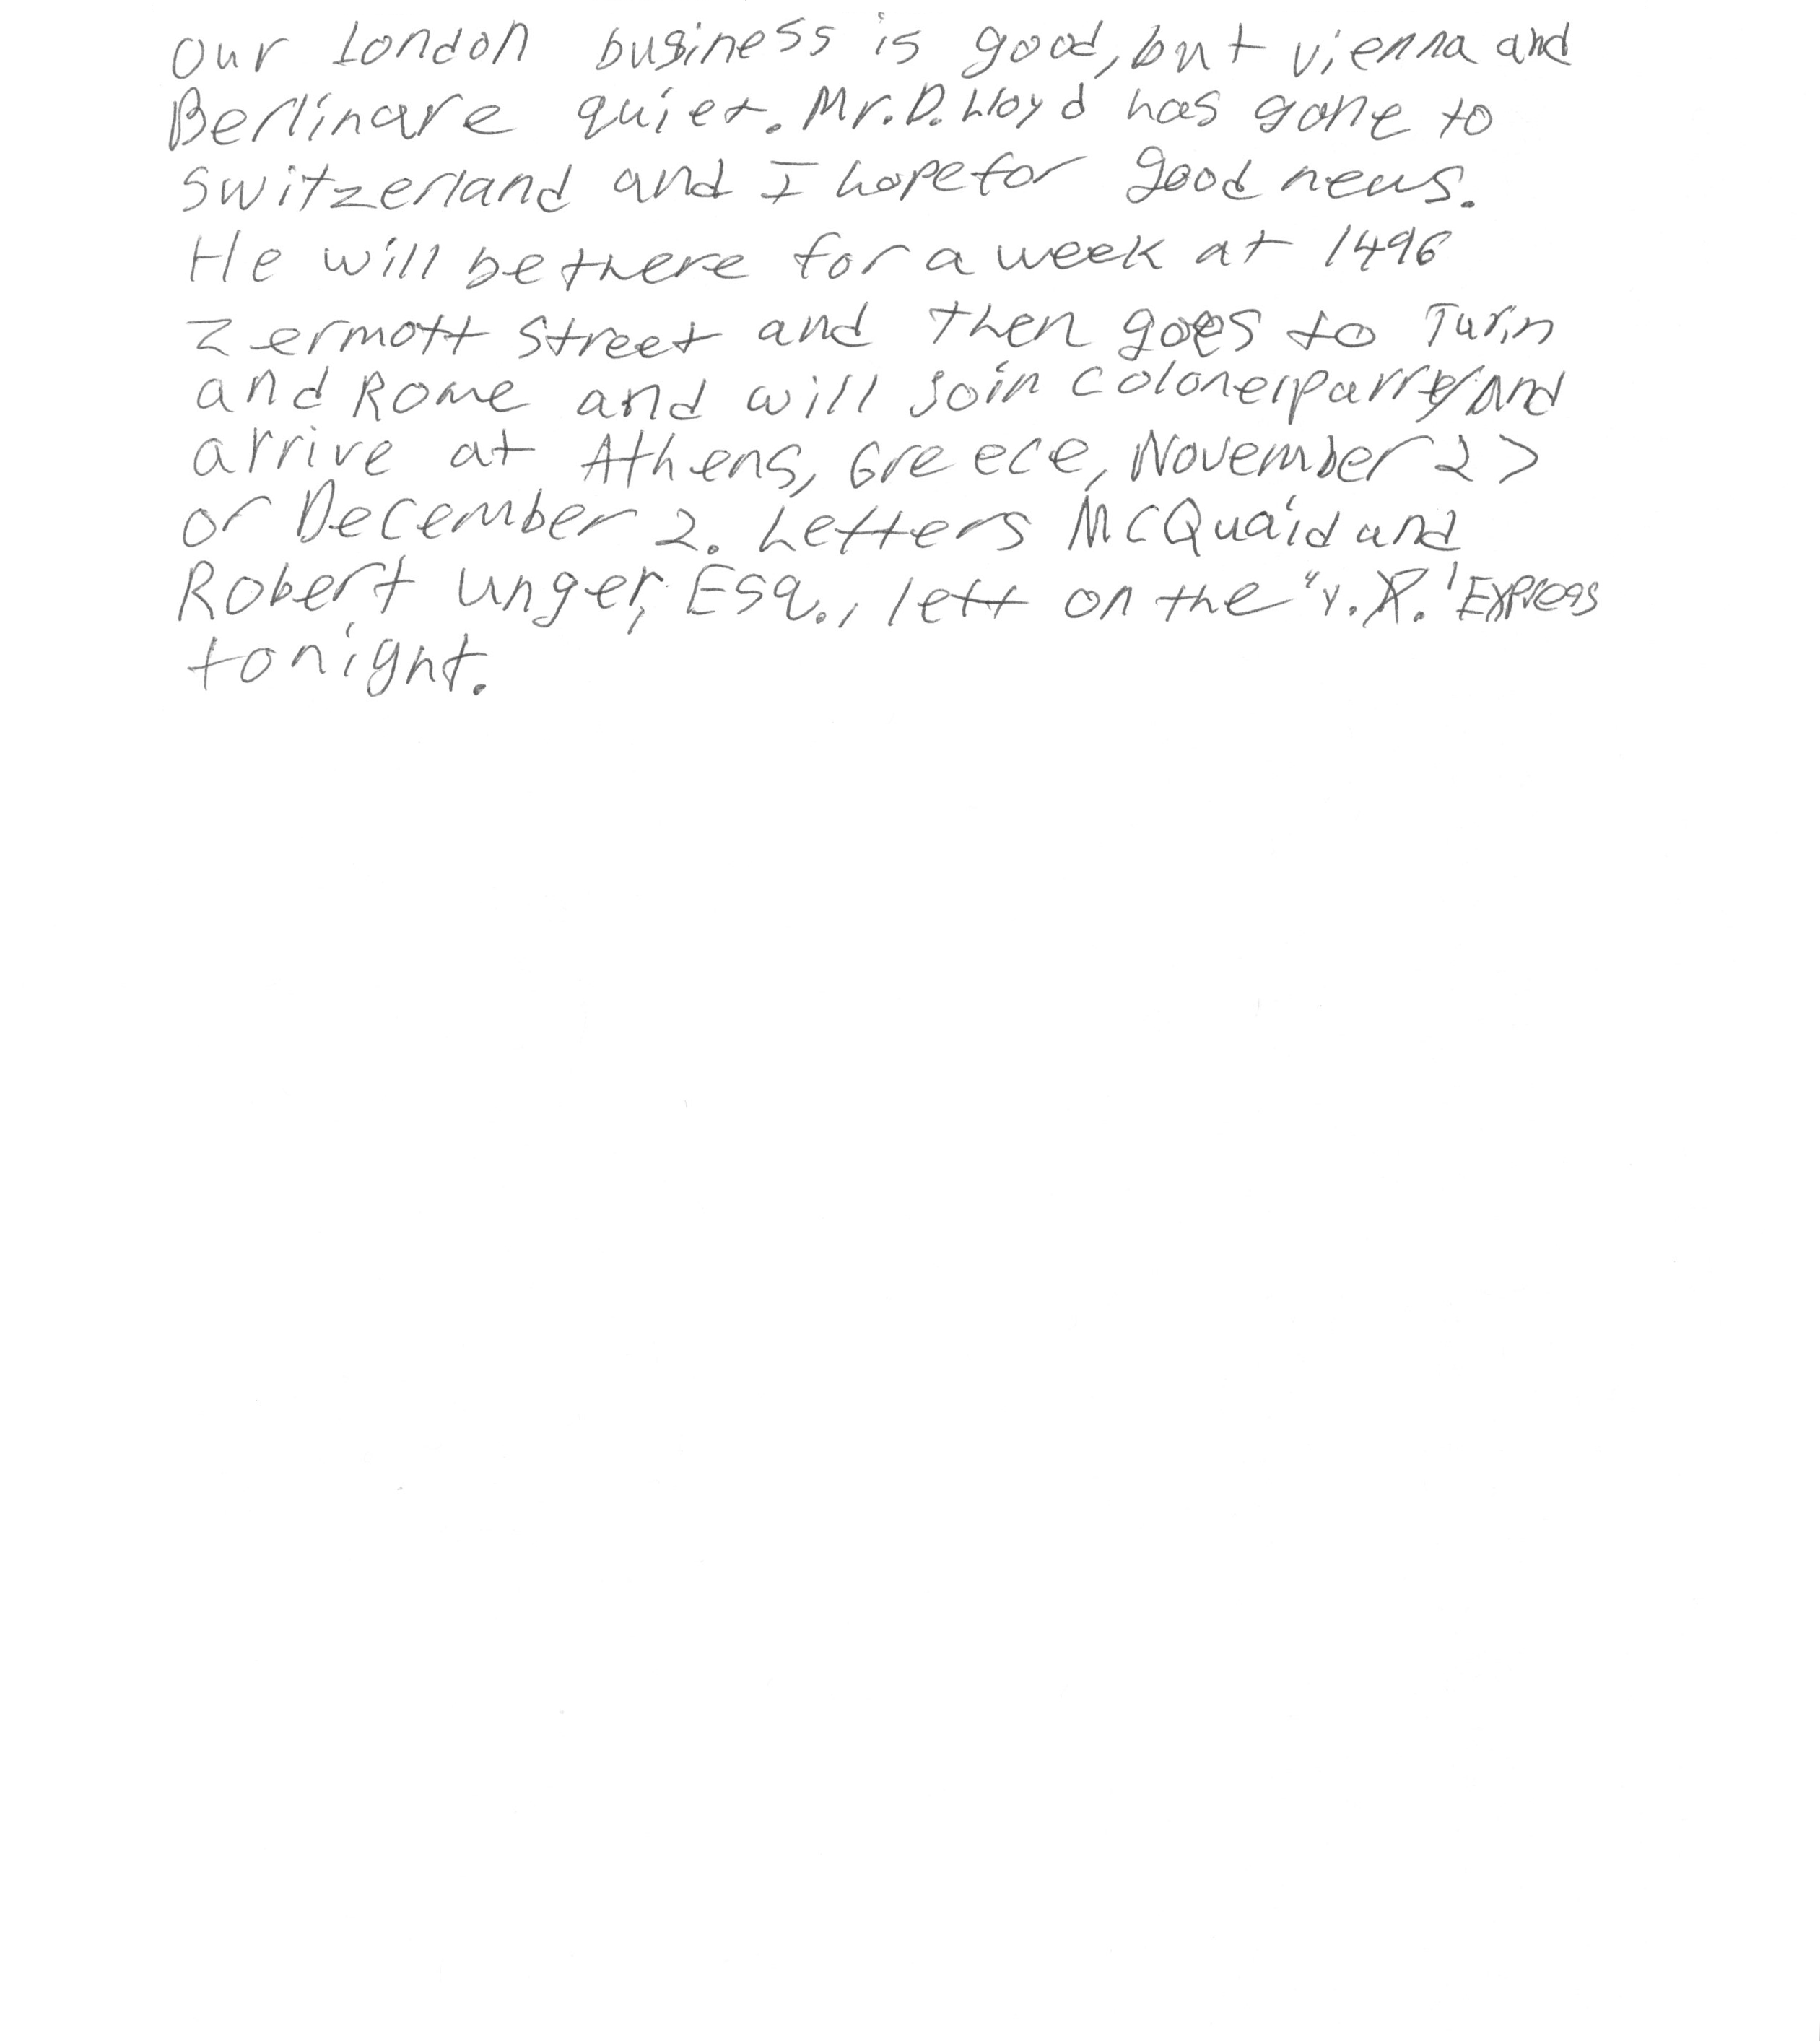 Our London business is good, but Vienna and
Berlin are quiet. Mr. D. Lloyd has gone to
Switzerland and I hope for good news.
He will be there for a week at 1496
Zermott Street and then goes to Turin
and Rome and will join Colonel Parry and
arrive at Athens, Greece, November 27
or December 2. Letters McQuaid and
Robert Unger, Esq., left on the "Y.X.' Express
tonight.